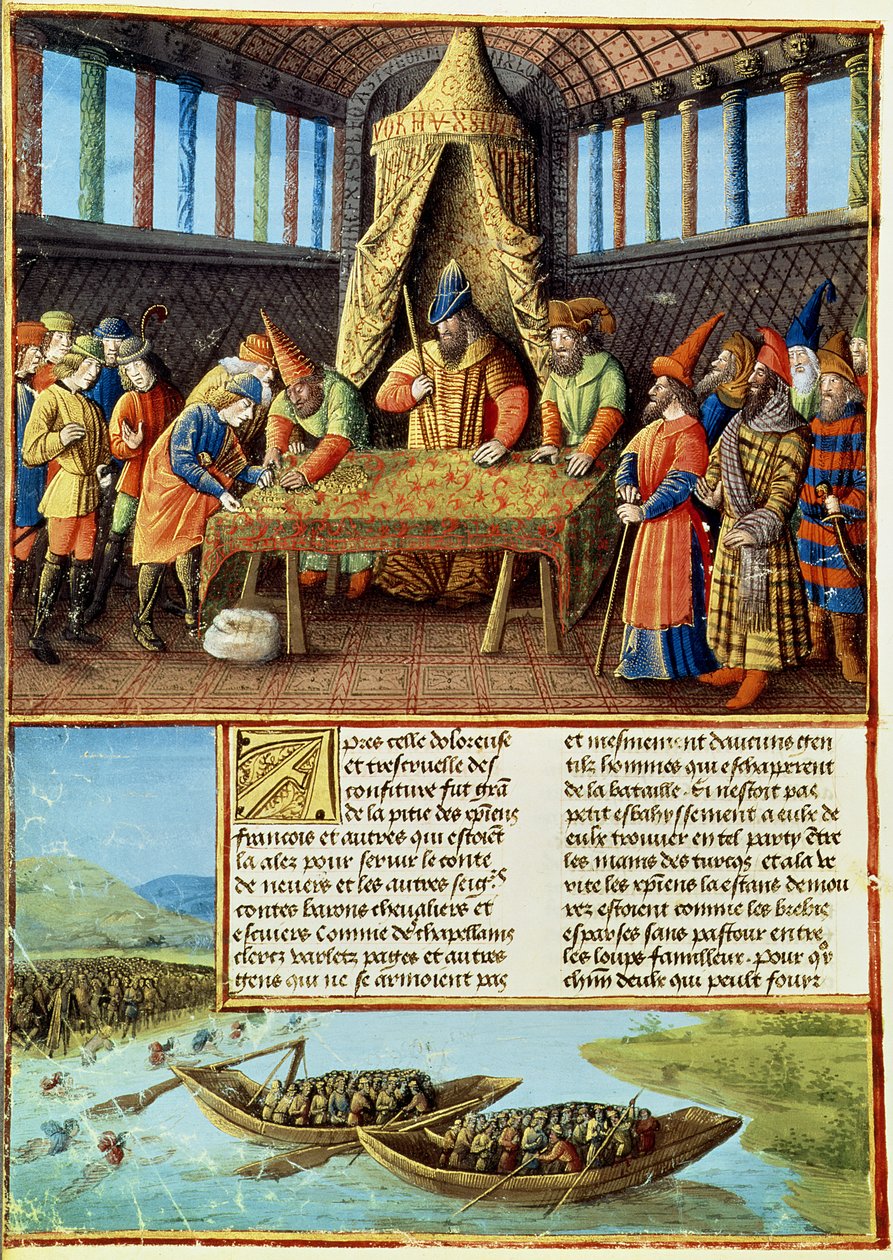 Apres celle doloreuse
et trescruelle des
confiture fut grã
de la pitie des xp̃iens
francois et autres qui estoiẽt
la alez pour seruir le conte
de neuers et les autres seigr̃s
contes barons cheualiers et
escuiers Comme de chapellains
clercz varletz pages et autres
gens qui ne se armoient pas
et mesmement daucuns gen
tilz hommes qui eschapperent
de la bataille. Si nestoit pas
petit esbahyssement a eulx de
eulx trouuer en tel party ẽtre
les mains des turcqs et a la ve
rite les xp̃iens la estans demou
rez estoient comme les brebis
esparses sans pastour entre
les loups familleux. Pour qͥ
chm̃ deulx qui peult fouyr